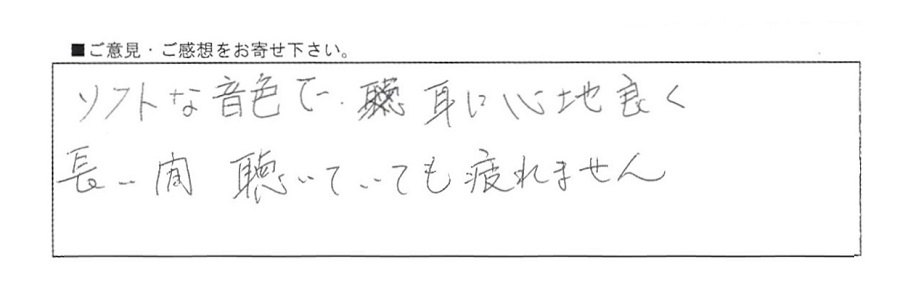 ■ご意見・ご感想をお寄せ下さい。
ソフトな音色で、耳に心地良く
長い間 聴いていても疲れません